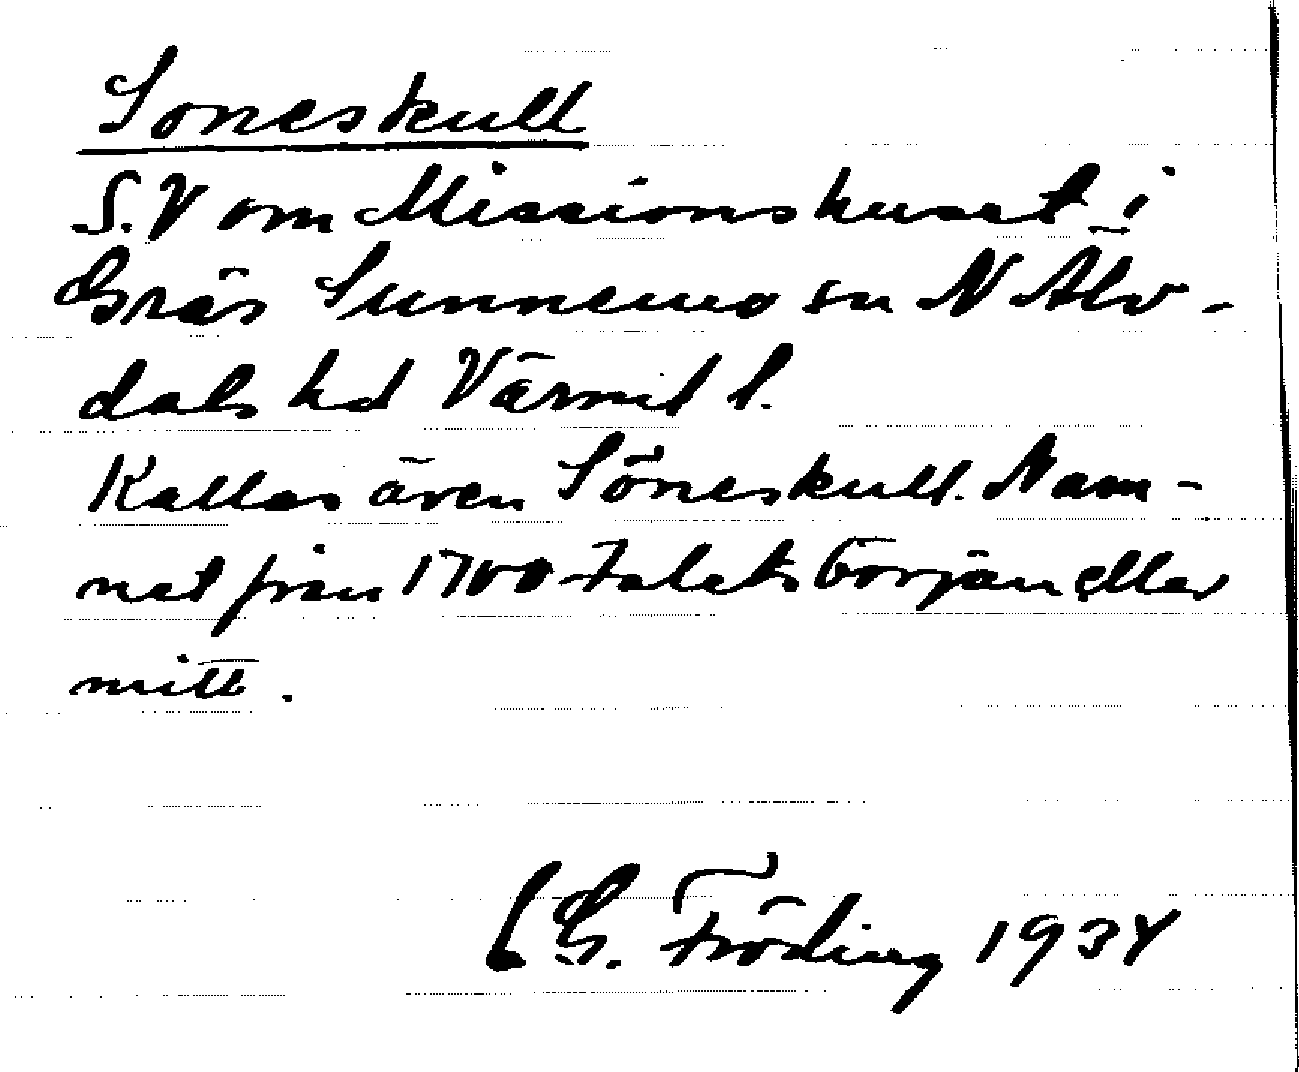 Soneskull
S.V om Missionshuset i
Gräs Sunnemo sn N Älv-
dals hd Värml l.
Kallas även Söneskull. Nam-
net från 1700-talets början eller
mitt.
G. Fröding 1934